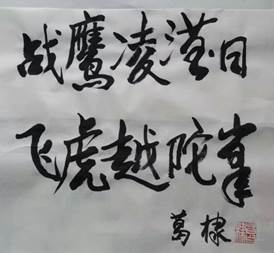 战鹰凌滢日
飞虎越陀峯
葛棣